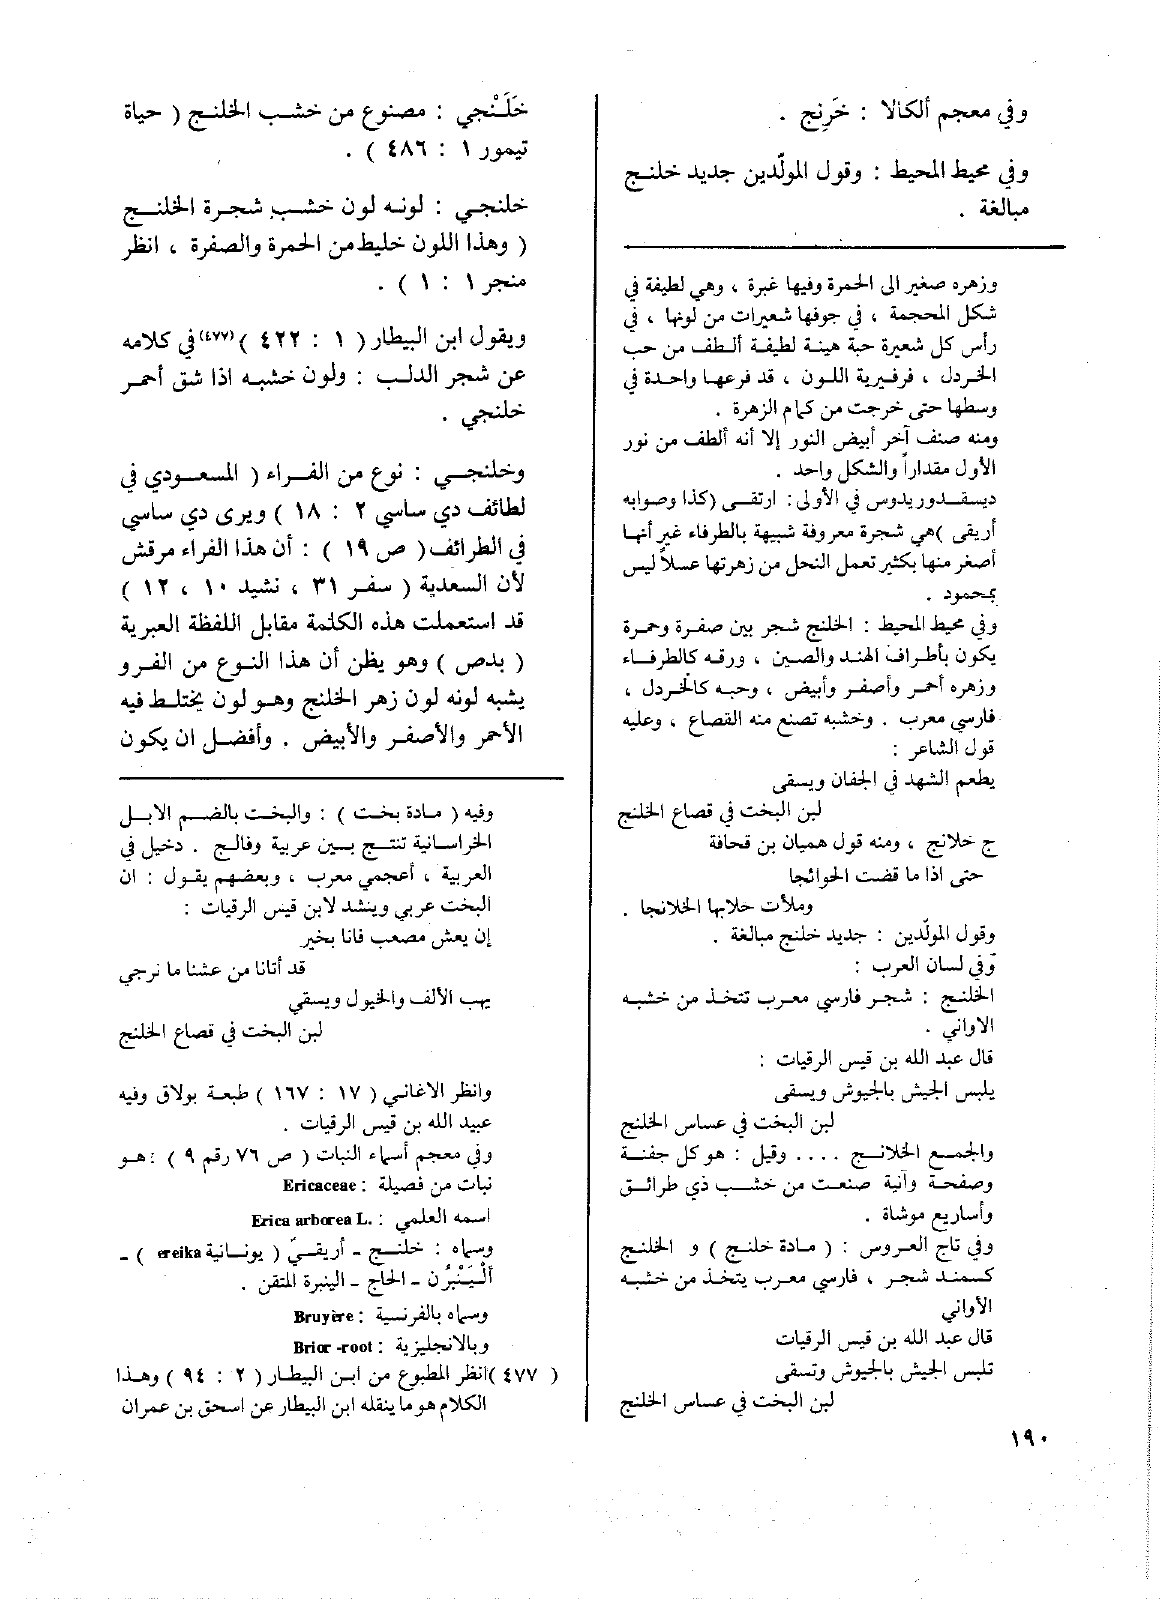 وفي معجم ألكالا : خَرِنج .
وفي محيط المحيط : وقول المولّدين جديد خلنج
مبالغة .
وزهره صغير الى الحمرة وفيها غبرة ، وهي لطيفة في
شكل المحجمة ، في جوفها شعيرات من لونها ، في
رأس كل شعيرة حبة هينة لطيفة ألطف من حب
الخردل ، فرفيرية اللون ، قد فرعها واحدة في
وسطها حتى خرجت من كمام الزهرة .
ومنه صنف آخر أبيض النور إلا أنه ألطف من نور
الأول مقداراً والشكل واحد .
ديسقدوريدوس في الأولى : ارتقى (كذا وصوابه
أريقى )هي شجرة معروفة شبيهة بالطرفاء غير أنها
أصغر منها بكثير تعمل النحل من زهرتها عسلاً ليس
بمحمود .
وفي محيط المحيط : الخلنج شجر بين صفرة وحمرة
يكون بأطراف الهند والصين ، ورقه كالطرفاء
وزهره أحمر وأصفر وأبيض ، وحبه كالخردل ،
فارسي معرب . وخشبه تصنع منه القصاع ، وعليه
قول الشاعر :
يطعم الشهد في الجفان ويسقى
لبن البخت في قصاع الخلنج
ج خلانج ، ومنه قول هميان بن قحافة
حتى اذا ما قضت الحوائجا
وملأت حلابها الخلانجا .
وقول المولّدين : جديد خلنج مبالغة .
وفي لسان العرب :
الخلنج : شجر فارسي معرب تتخذ من خشبه
الاواني .
قال عبد الله بن قيس الرقيات :
يلبس الجيش بالجيوش ويسقى
لبن البخت في عساس الخلنج
والجمع الخلانج .... وقيل : هو كل جفنة
وصفحة وآنية صنعت من خشب ذي طرائق
وأساريع موشاة .
وفي تاج العروس : ( مادة خلنج ) و الخلنج
كسمند شجر ، فارسي معرب يتخذ من خشبه
الأواني
قال عبد الله بن قيس الرقيات
تلبس الجيش بالجيوش وتسقى
لبن البخت في عساس الخلنج
خَلَنْجي : مصنوع من خشب الخلنج ( حياة
تيمور ١ : ٤٨٦ ) .
خلنجي : لونه لون خشب شجرة الخلنج
( وهذا اللون خليط من الحمرة والصفرة ، انظر
منجر ١ : ١ ) .
ويقول ابن البيطار ( ١ : ٤٢٢ )(٤٧٧) في كلامه
عن شجر الدلب : ولون خشبه اذا شق أحمر
خلنجي .
وخلنجي : نوع من الفراء ( المسعودي في
لطائف دي ساسي ٢ : ١٨ ) ويرى دي ساسي
في الطرائف ( ص ١٩ ) : أن هذا الفراء مرقش
لأن السعدية ( سفر ٣١ ، نشيد ١٠ ، ١٢ )
قد استعملت هذه الكلمة مقابل اللفظة العبرية
( بدص ) وهو يظن أن هذا النوع من الفرو
يشبه لونه لون زهر الخلنج وهو لون يختلط فيه
الأحمر والأصفر والأبيض . وأفضل ان يكون
وفيه ( مادة بخت ) : والبخت بالضم الابل
الخراسانية تنتج بين عربية وفالج . دخيل في
العربية ، أعجمي معرب ، وبعضهم يقول : ان
البخت عربي وينشد لابن قيس الرقيات :
إن يعش مصعب فانا بخير
قد أتانا من عشنا ما نرجي
يهب الألف والخيول ويسقي
لبن البخت في قصاع الخلنج
وانظر الاغاني ( ١٧ : ١٦٧ ) طبعة بولاق وفيه
عبيد الله بن قيس الرقيات .
وفي معجم أسماء النبات ( ص ٧٦ رقم ٩ ) : هو
نبات من فصيلة : Ericaceae
اسمه العلمي : Erica arborea L.
وسماه : خلنج – أريقيّ ( يونانية ereika ) –
ألْيَنْبُرُن – الحاج – الينبرة المتقن .
وسماه بالفرنسية : Bruyère
وبالانجليزية : Brior -root
( ٤٧٧ )انظر المطبوع من ابن البيطار ( ٢ : ٩٤ ) وهذا
الكلام هو ما ينقله ابن البيطار عن اسحق بن عمران
١٩٠